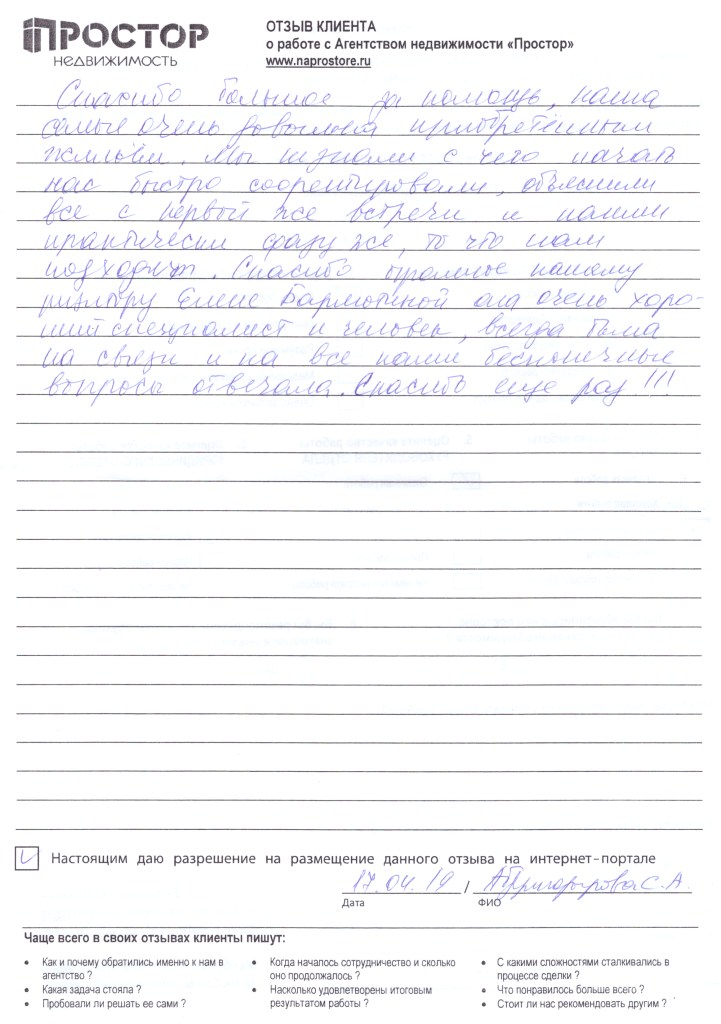 ПРОСТОР
НЕДВИЖИМОСТЬ
ОТЗЫВ КЛИЕНТА
о работе с Агентством недвижимости «Простор»
www.naprostore.ru
Спасибо большое за помощь, наша
семья очень довольна приобретённым
жильём. Мы не знали с чего начать
нас быстро сориентировали, объяснили
все с первой же встречи и нашли
практически сразу же, то что нам
подходит. Спасибо огромное нашему
риэлтору Елене она очень хоро-
ший специалист и человек, всегда была
на связи и на все наши бесконечные
вопросы отвечала. Спасибо еще раз!!!
Настоящим даю разрешение на размещение данного отзыва на интернет-портале
17.04.19 / С.А.
Дата ФИО
Чаще всего в своих отзывах клиенты пишут:
• Как и почему обратились именно к нам в
агентство ?
• Какая задача стояла ?
• Пробовали ли решать ее сами ?
• Когда началось сотрудничество и сколько
оно продолжалось ?
• Насколько удовлетворены итоговым
результатом работы ?
• С какими сложностями сталкивались в
процессе сделки ?
• Что понравилось больше всего ?
• Стоит ли нас рекомендовать другим ?